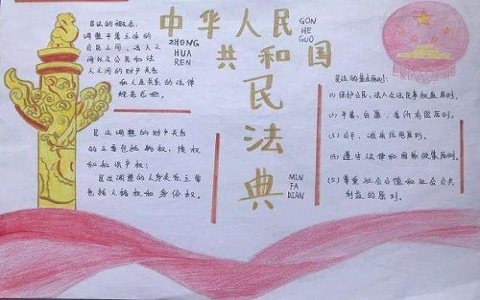 中华人民
共和国
民法典
ZHONG
HUA
REN
GON
HE
GUO
MIN
FA
DIAN
民法的概念:
调整平等主体的
自然人之间、法人之
间以及公民和法
人之间的财产关系
和人身关系的法律
规范总称。
民法调整的财产关系
的主要包括物权,债权
和知识产权;
民法调整的人身关系主要
包括人格权和身份权。
民法的基本原则:
(3) 公平、诚实信用原则。
(4) 遵守法律和国家政策原则。
(5) 尊重社会公德和社会公共
利益的原则。